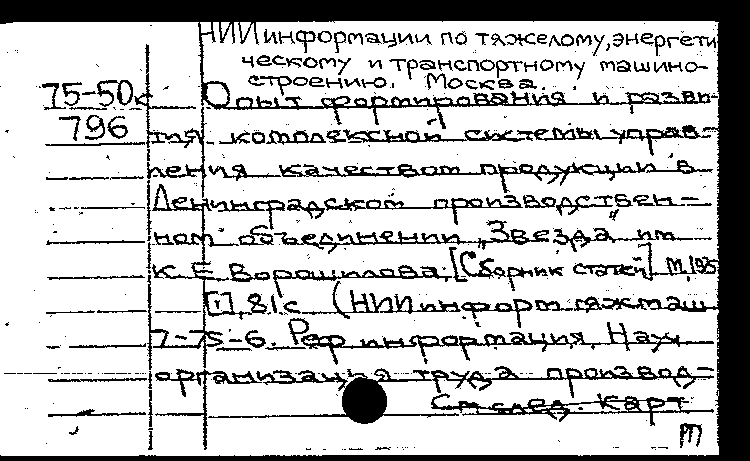 НИИ информации по тяжелому, энергети
ческому и транспортному машино-
строению. Москва.
75-50к Опыт формирования и разви-
796 тия комплексной системы управ-
ления качеством продукции в
Ленинградском производствен-
ном объединении „Звезда" им
К Е Ворошилова. [Сборник статей] М, 1975
[1], 81с (НИИинформтяжмаш
7-75-6. Реф информация. Науч
организация труда производ-
См след. карт